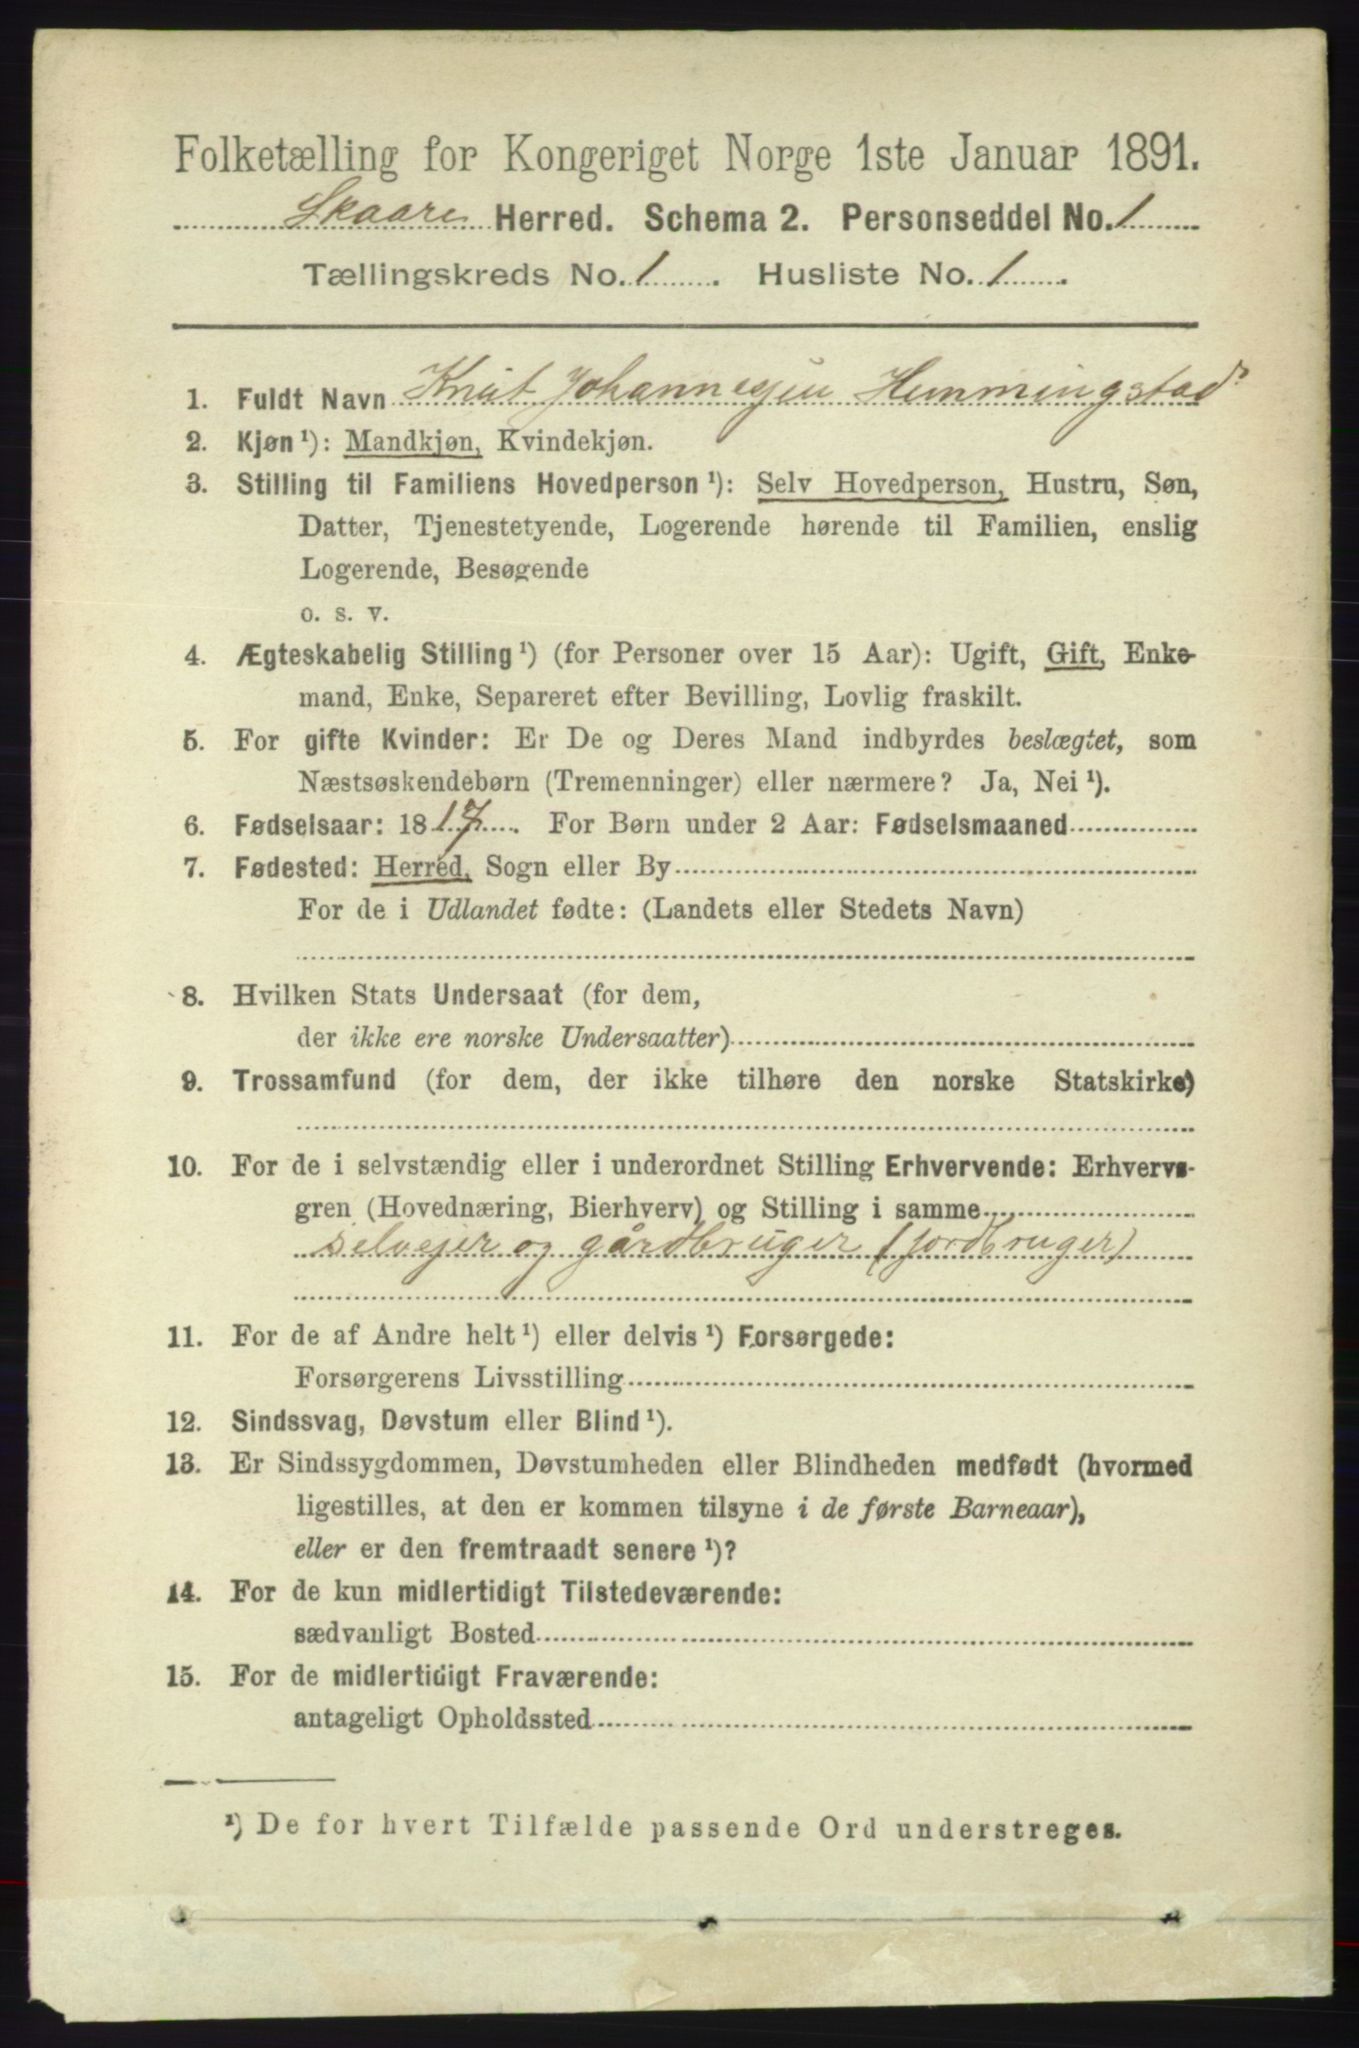 Folketælling for Kongeriget Norge 1ste Januar 1891.
Skaare Herred. Schema 2. Personseddel No. 1
Tællingskreds No. 1. Husliste No. 1.
1. Fuldt Navn Knut Johannesen Hemmingstad
2. Kjøn ¹): Mandkjøn, Kvindekjøn.
3. Stilling til Familiens Hovedperson ¹): Selv Hovedperson, Hustru, Søn,
Datter, Tjenestetyende, Logerende hørende til Familien, enslig
Logerende, Besøgende
o. s. v.
4. Ægteskabelig Stilling ¹) (for Personer over 15 Aar): Ugift, Gift, Enke-
mand, Enke, Separeret efter Bevilling, Lovlig fraskilt.
5. For gifte Kvinder: Er De og Deres Mand indbyrdes beslægtet, som
Næstsøskendebørn (Tremenninger) eller nærmere? Ja, Nei ¹).
6. Fødselsaar: 1817. For Børn under 2 Aar: Fødselsmaaned
7. Fødested: Herred, Sogn eller By
For de i Udlandet fødte: (Landets eller Stedets Navn)
8. Hvilken Stats Undersaat (for dem,
der ikke ere norske Undersaatter)
9. Trossamfund (for dem, der ikke tilhøre den norske Statskirke)
10. For de i selvstændig eller i underordnet Stilling Erhvervende: Erhvervs-
gren (Hovednæring, Bierhverv) og Stilling i samme
selvejer og gårdbruger (jordbruger)
11. For de af Andre helt ¹) eller delvis ¹) Forsørgede:
Forsørgerens Livsstilling
12. Sindssvag, Døvstum eller Blind ¹).
13. Er Sindssygdommen, Døvstumheden eller Blindheden medfødt (hvormed
ligestilles, at den er kommen tilsyne i de første Barneaar),
eller er den fremtraadt senere ¹)?
14. For de kun midlertidigt Tilstedeværende:
sædvanligt Bosted
15. For de midlertidigt Fraværende:
antageligt Opholdssted
¹) De for hvert Tilfælde passende Ord understreges.